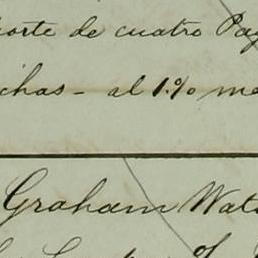 orte de cuatro Pag
chas - al 1% me
Graham Wat